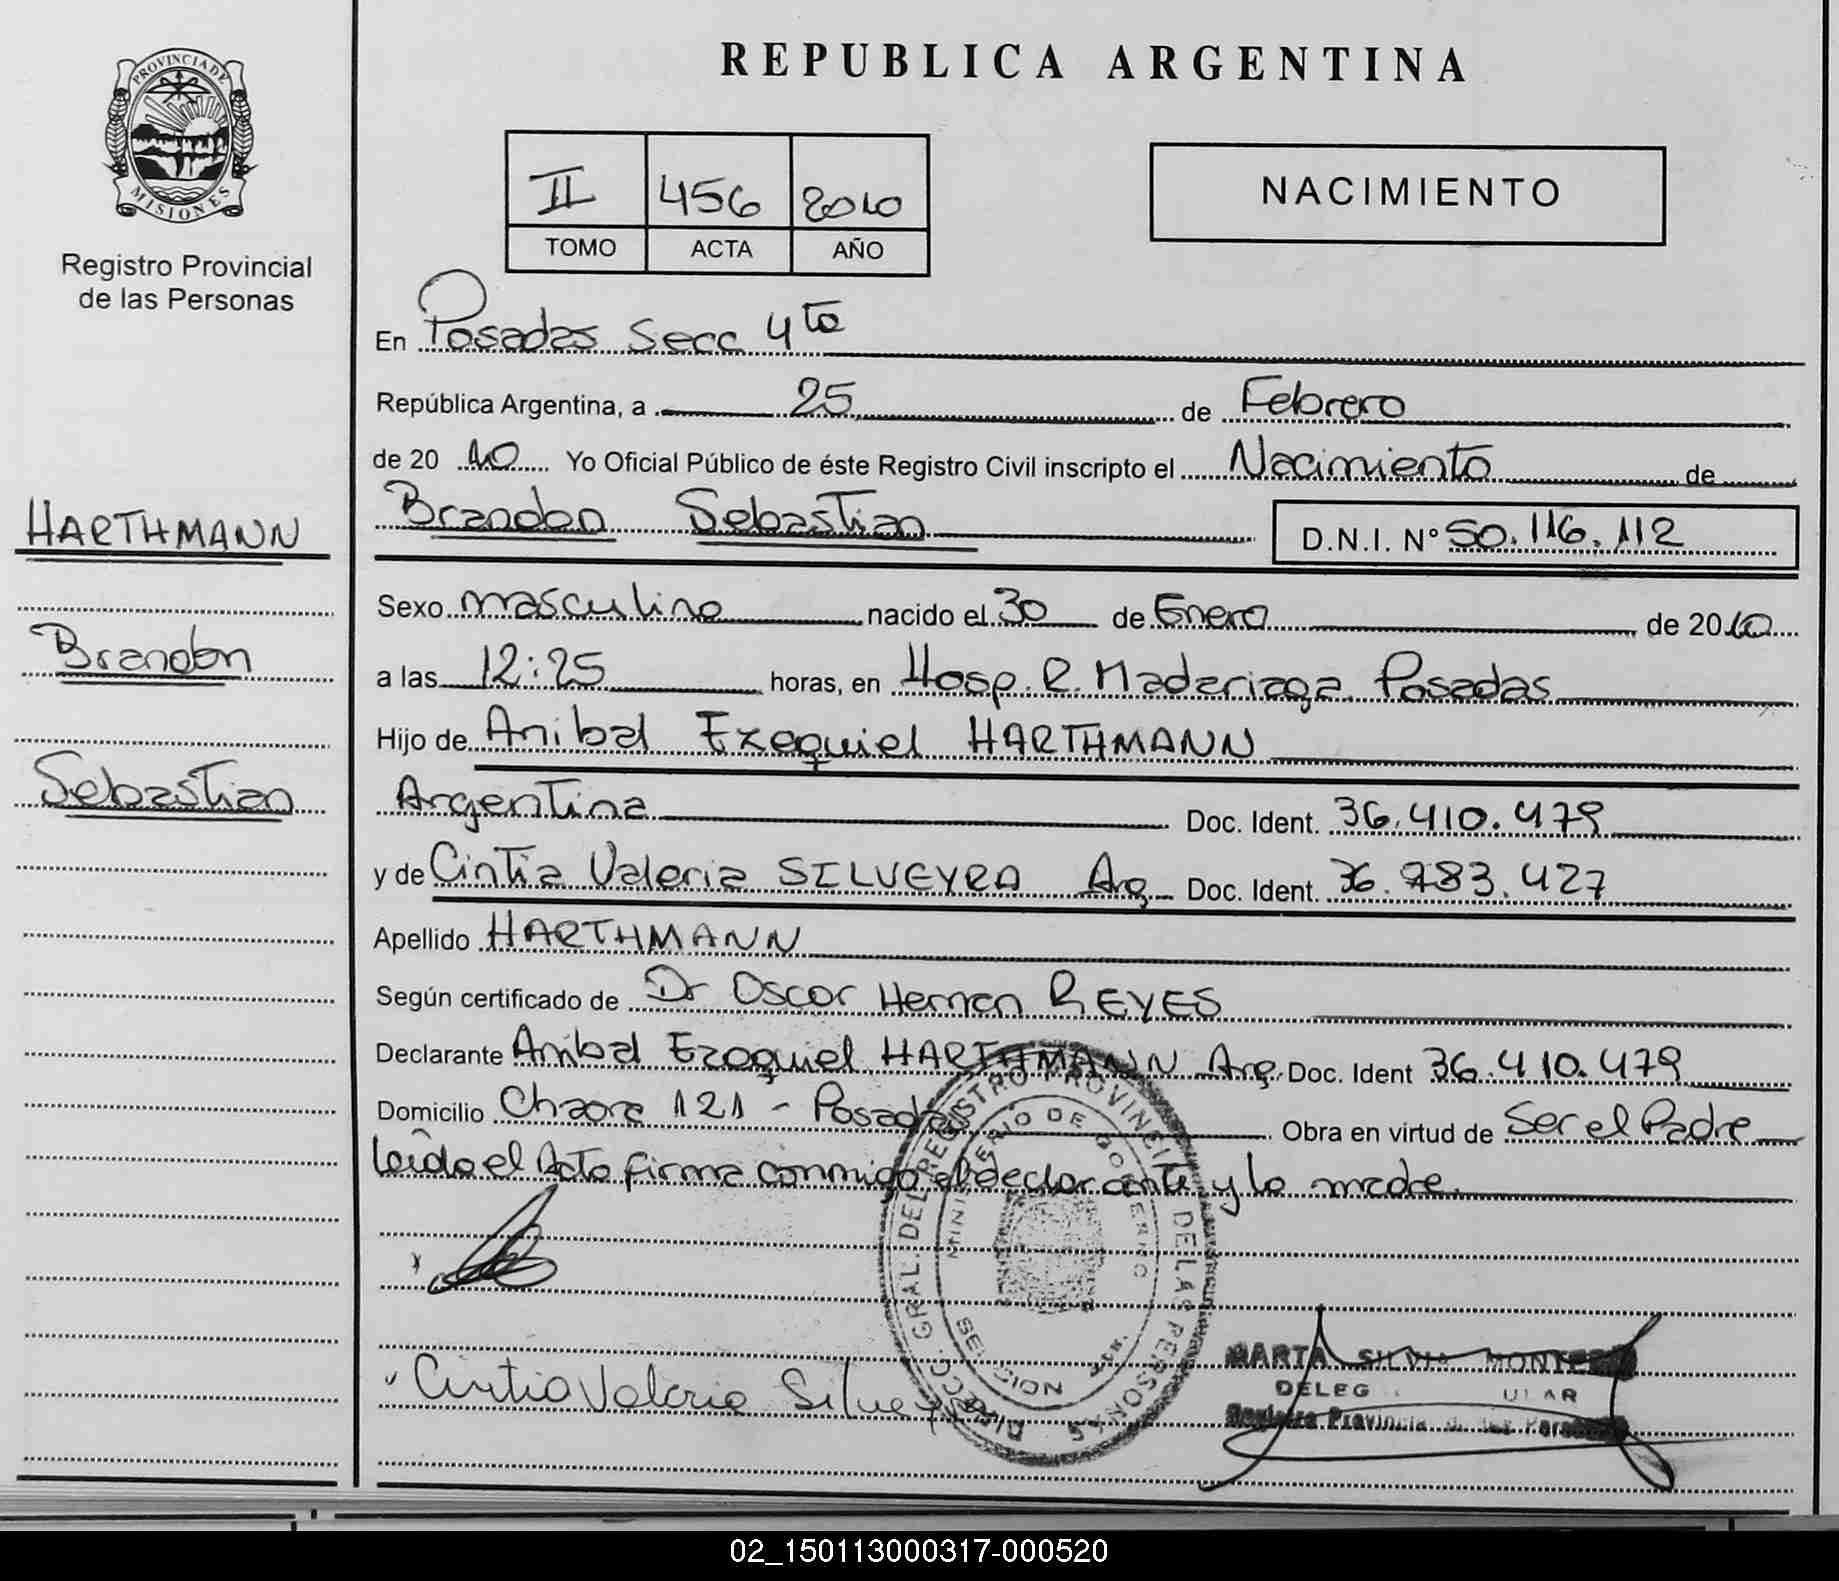 PROVINCIA DE
MISIONES
Registro Provincial
de las Personas
HARTHMANN
Brandon
Sebastian
REPUBLICA ARGENTINA
II 456 2010
TOMO ACTA AÑO
NACIMIENTO
En Posadas Secc 4ta
República Argentina, a 25 de Febrero
de 20 10 Yo Oficial Público de éste Registro Civil inscripto el Nacimiento de
Brandon Sebastian D.N.I. Nº 50.116.112
Sexo masculino nacido el 30 de Enero de 2010
a las 12:25 horas, en Hosp. R. Madariaga Posadas
Hijo de Anibal Ezequiel HARTHMANN
Argentina Doc. Ident. 36.410.479
y de Cintia Valeria SILVEYRA Arg Doc. Ident. 36.783.427
Apellido HARTHMANN
Según certificado de Dr Oscar Hernan REYES
Declarante Anibal Ezequiel HARTHMANN Arg. Doc. Ident 36.410.479
Domicilio Chacra 121 - Posadas Obra en virtud de Ser el Padre
leída el Acta firma conmigo el declarante y la madre.
DIRECC. GRAL. DEL REGISTRO PROVINCIAL DE LAS PERSONAS
MINISTERIO DE GOBIERNO
MISIONES
Cintia Valeria Silveyra
MARTA SILVIA MONTERO
DELEG ULAR
Registro Provincial de las Personas
02_150113000317-000520